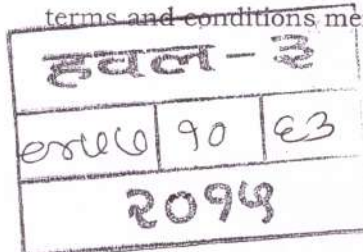 terms and conditions me
हवल - ३
१० ६३
२०१५